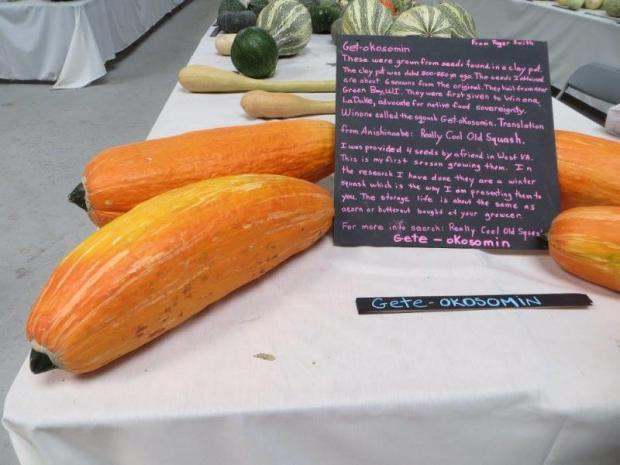 Get-okosomin From Roger Smith
These were grown from seeds found in a clay pot.
The clay pot was dated 800-850 yrs ago. The seeds I obtained
are about 6 seasons from the original. They hail from near
Green Bay, WI. They were first given to Winona
LaDuke, advocate for native food sovereignty.
Winona called the squash Gest-okosomin. Translation
from Anishinaabe: Really Cool Old Squash.
I was provided 4 seeds by a friend in West KB.
This is my first season growing them. In
the research I have done they are a winter
squash which is the way I am presenting them to
you. The storage life is about the same as
acorn or butternut bought at your grocer.
For more info search: Really Cool Old Squash
Gete - okosomin
Gete-OKOSOMIN